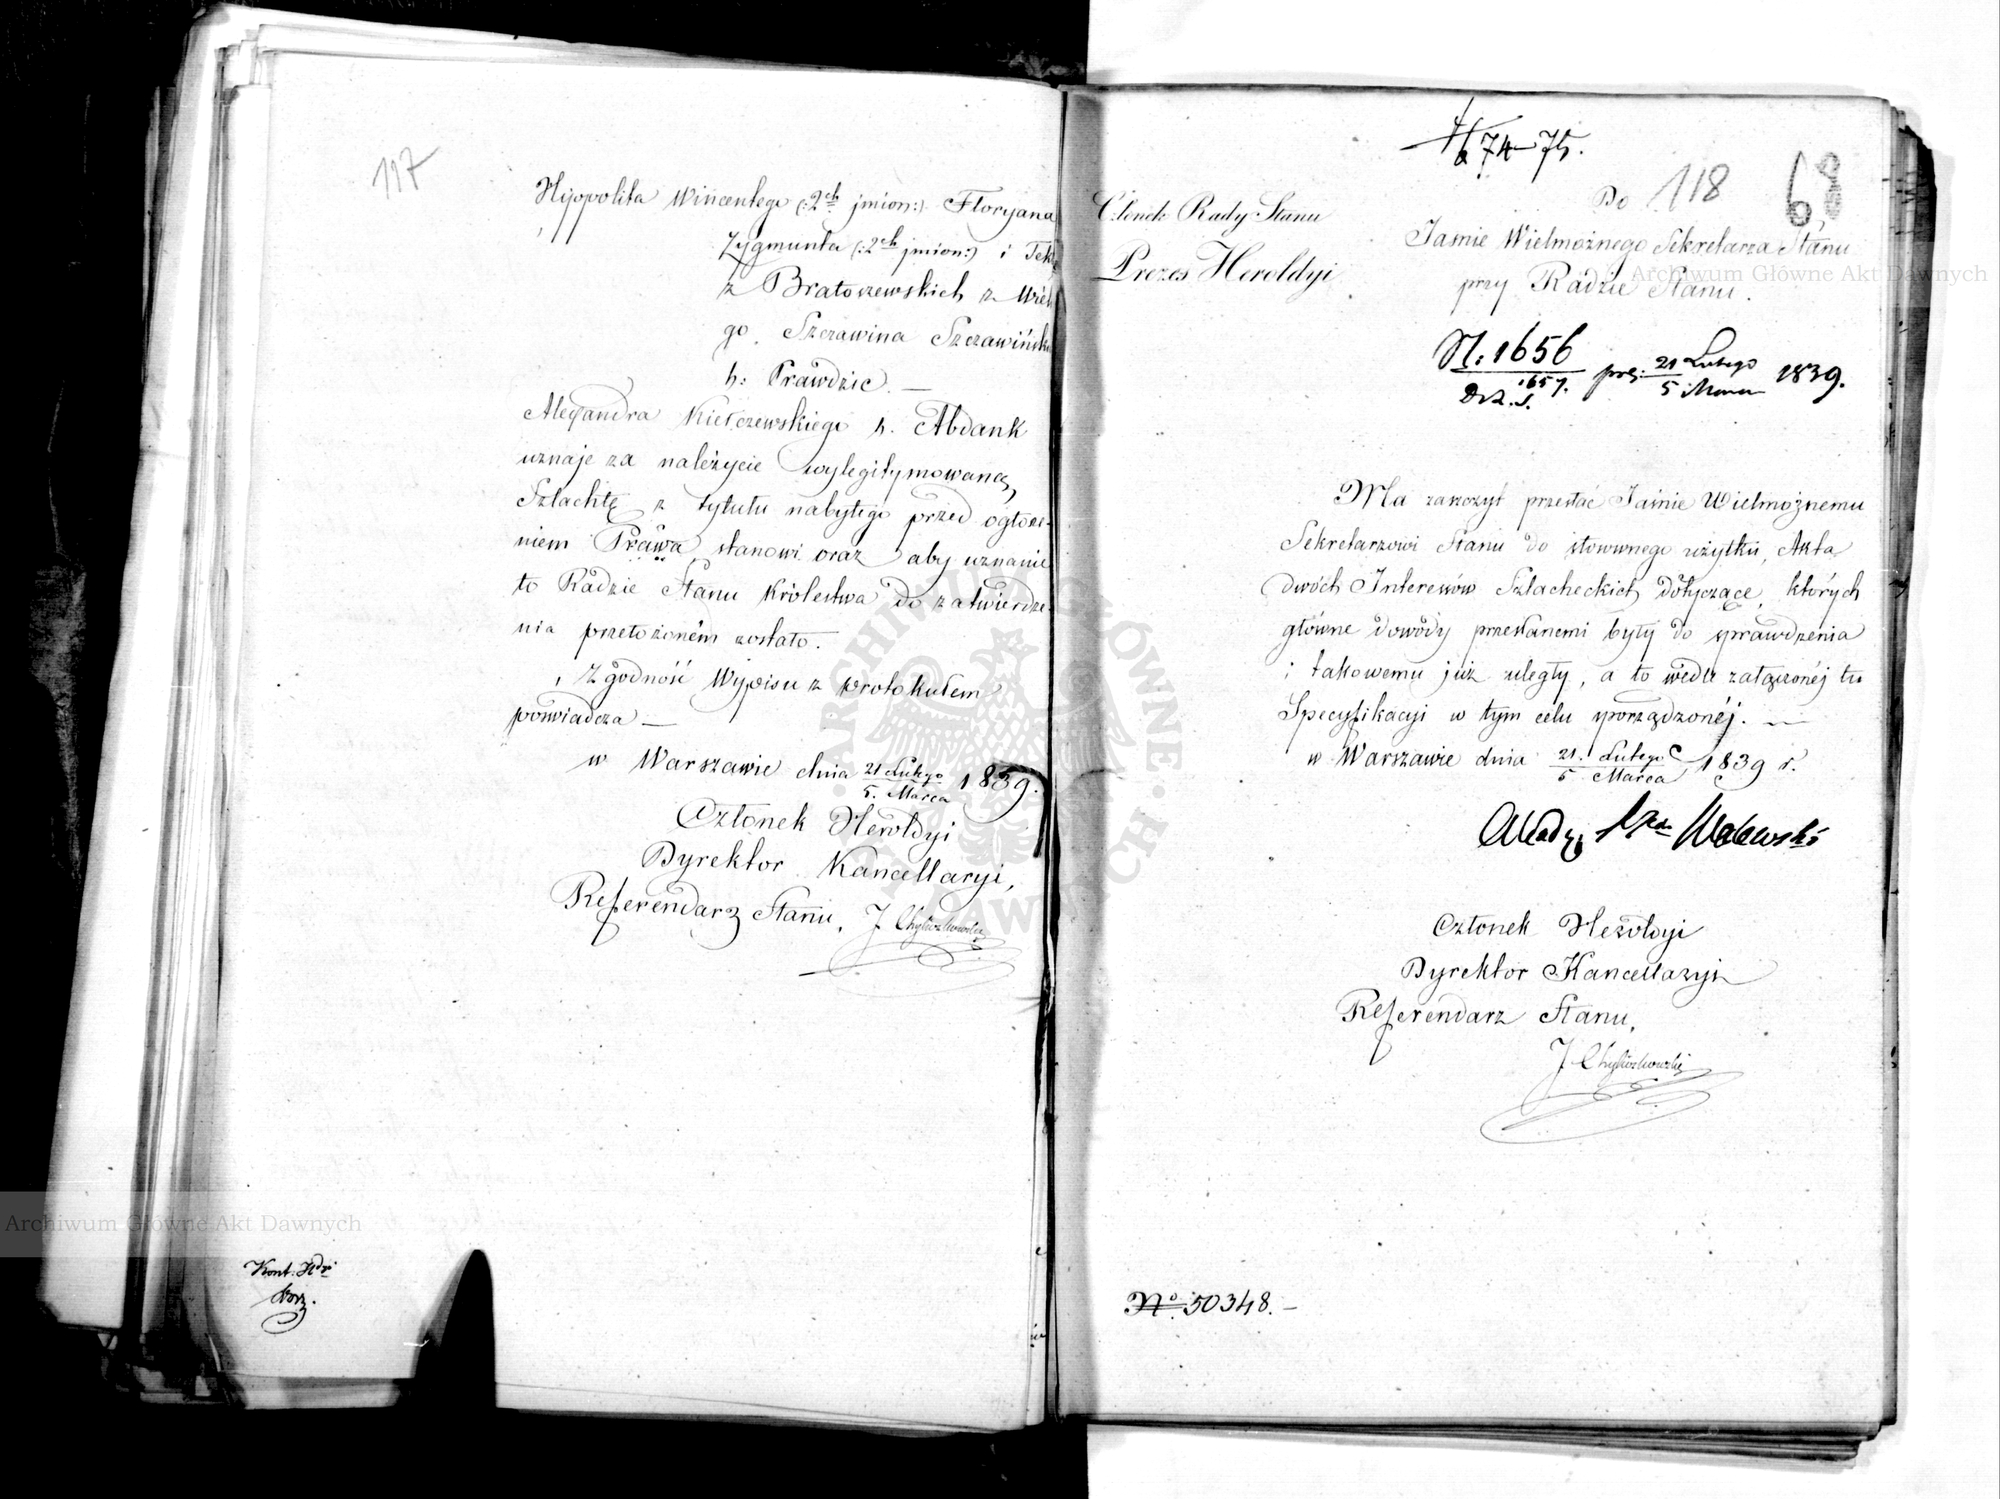 117
Hyppolita Wincentego (:2ch jmion:) Floryana
Zygmunta (:2ch jmion:) i Tek
z Bratoszewskich z Wiel
go Szczawina Szczawińsk
h: Prawdzic —
Alexandra Kiełczewskiego h. Abdank
uznaje za należycie wylegitymowaną
Szlachtę z tytułu nabytego przed ogłosze-
niem Prawa, stanowi oraz aby uznanie
to Radzie Stanu Królestwa do zatwierdze-
nia przełożoném zostało.
Zgodność Wypisu z Protokułem
poświadcza —
w Warszawie dnia 21 Lutego / 5. Marca 1839.
Członek Heroldyi
Dyrektor Kancellaryi,
Referendarz Stanu, J Chyliczkowski
Kont: Hdyi
Archiwum Główne Akt Dawnych
74–75.
118
68
Członek Rady Stanu
Prezes Heroldyi
Do
Jaśnie Wielmożnego Sekretarza Stanu
przy Radzie Stanu.
Archiwum Główne Akt Dawnych
N: 1656 / 1657. 21 Lutego / 5 Marca 1839.
Ma zaszczyt przesłać Jaśnie Wielmożnemu
Sekretarzowi Stanu do stosownego użytku, Akta
dwóch Interesów Szlacheckich dotyczące, których
główne dowody przesłanemi były do sprawdzenia
i takowemu już uległy, a to wedle załączonéj tu
Specyfikacyi w tym celu sporządzonéj. —
w Warszawie dnia 21. Lutego / 5 Marca 1839 r.
Walewski
Członek Heroldyi
Dyrektor Kancellaryi
Referendarz Stanu,
J Chyliczkowski
No. 50348. —
ARCHIWUM GŁÓWNE AKT DAWNYCH